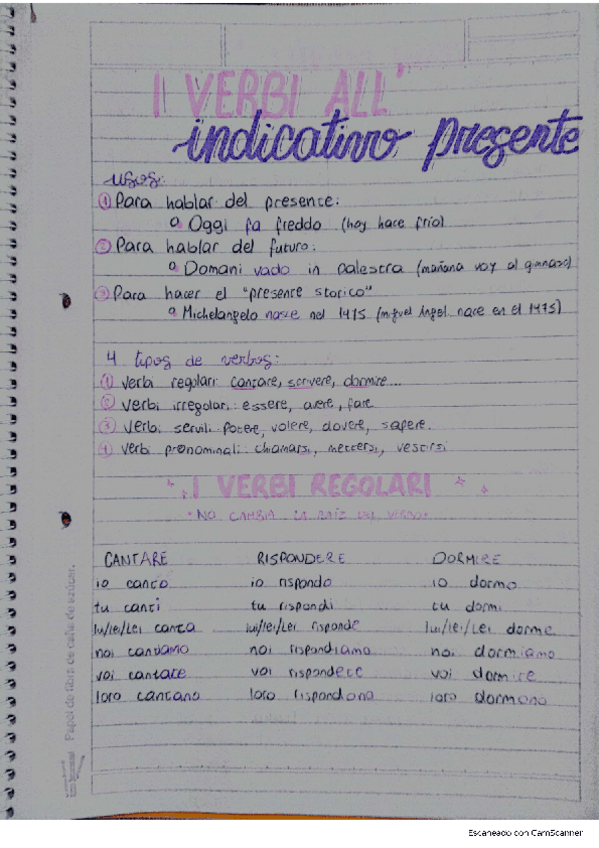 I VERBI ALL'
indicativo presente
usos:
① Para hablar del presente:
o Oggi fa freddo (hoy hace frío)
② Para hablar del futuro:
o Domani vado in palestra (mañana voy al gimnasio)
③ Para hacer el "presente storico"
o Michelangelo nasce nel 1475 (Miguel Ángel nace en el 1475)
4 tipos de verbos:
① Verbi regolari: cantare, scrivere, dormire...
② Verbi irregolari: essere, avere, fare
③ Verbi servili: Potere, volere, dovere, sapere.
④ Verbi pronominali: chiamarsi, mettersi, vestirsi
I VERBI REGOLARI
• NO CAMBIA LA RAÍZ DEL VERBO •
CANTARE RISPONDERE DORMIRE
io canto io rispondo io dormo
tu canti tu rispondi tu dormi
lui/lei/Lei canta lui/lei/Lei risponde lui/lei/Lei dorme
noi cantiamo noi rispondiamo noi dormiamo
voi cantate voi rispondete voi dormite
loro cantano loro rispondono loro dormono
Papel de fibra de caña de azúcar.
Escaneado con CamScanner